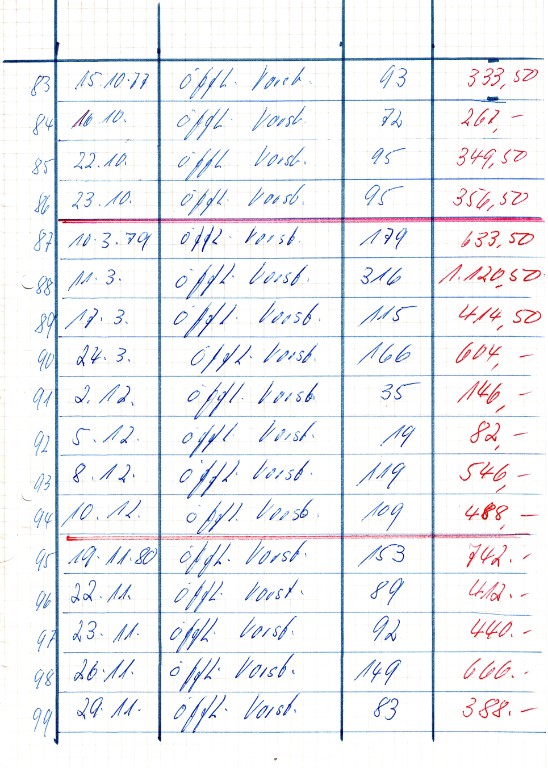 83 15.10.77 öffl. Vorst. 93 333,50
84 16.10. öffl. Vorst. 72 267,-
85 22.10. öffl. Vorst. 95 349,50
86 23.10. öffl. Vorst. 95 356,50
87 10.3.79 öffl. Vorst. 179 633,50
88 11.3. öffl. Vorst. 316 1.120,50
89 17.3. öffl. Vorst. 115 414,50
90 24.3. öffl. Vorst. 166 604,-
91 2.12. öffl. Vorst. 35 146,-
92 5.12. öffl. Vorst. 19 82,-
93 8.12. öffl. Vorst. 119 546,-
94 10.12. öffl. Vorst. 109 488,-
95 19.11.80 öffl. Vorst. 153 742.-
96 22.11. öffl. Vorst. 89 412.-
97 23.11. öffl. Vorst. 92 440.-
98 26.11. öffl. Vorst. 149 666.-
99 29.11. öffl. Vorst. 83 388.-